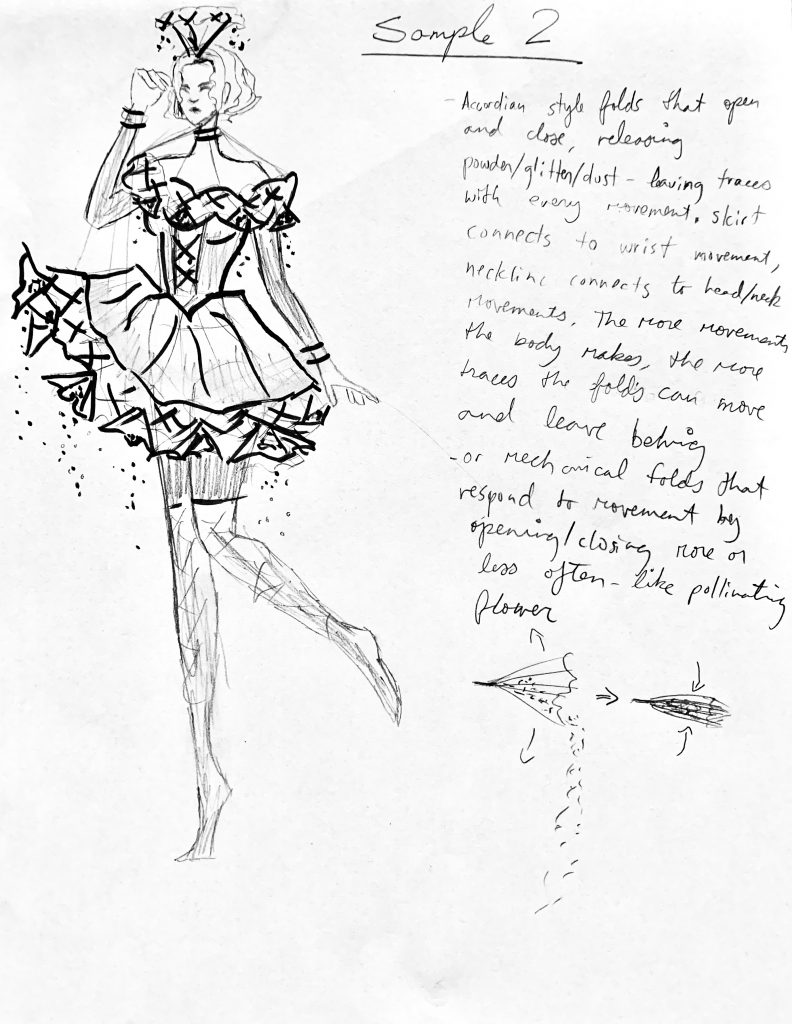 Sample 2
- Accordian style folds that open
and close, releasing
powder/glitter/dust - leaving traces
with every movement. skirt
connects to wrist movement,
neckline connects to head/neck
movements. The more movements
the body makes, the more
traces the folds can move
and leave behing
- or mechanical folds that
respond to movement by
opening/closing more or
less often - like pollinating
flower